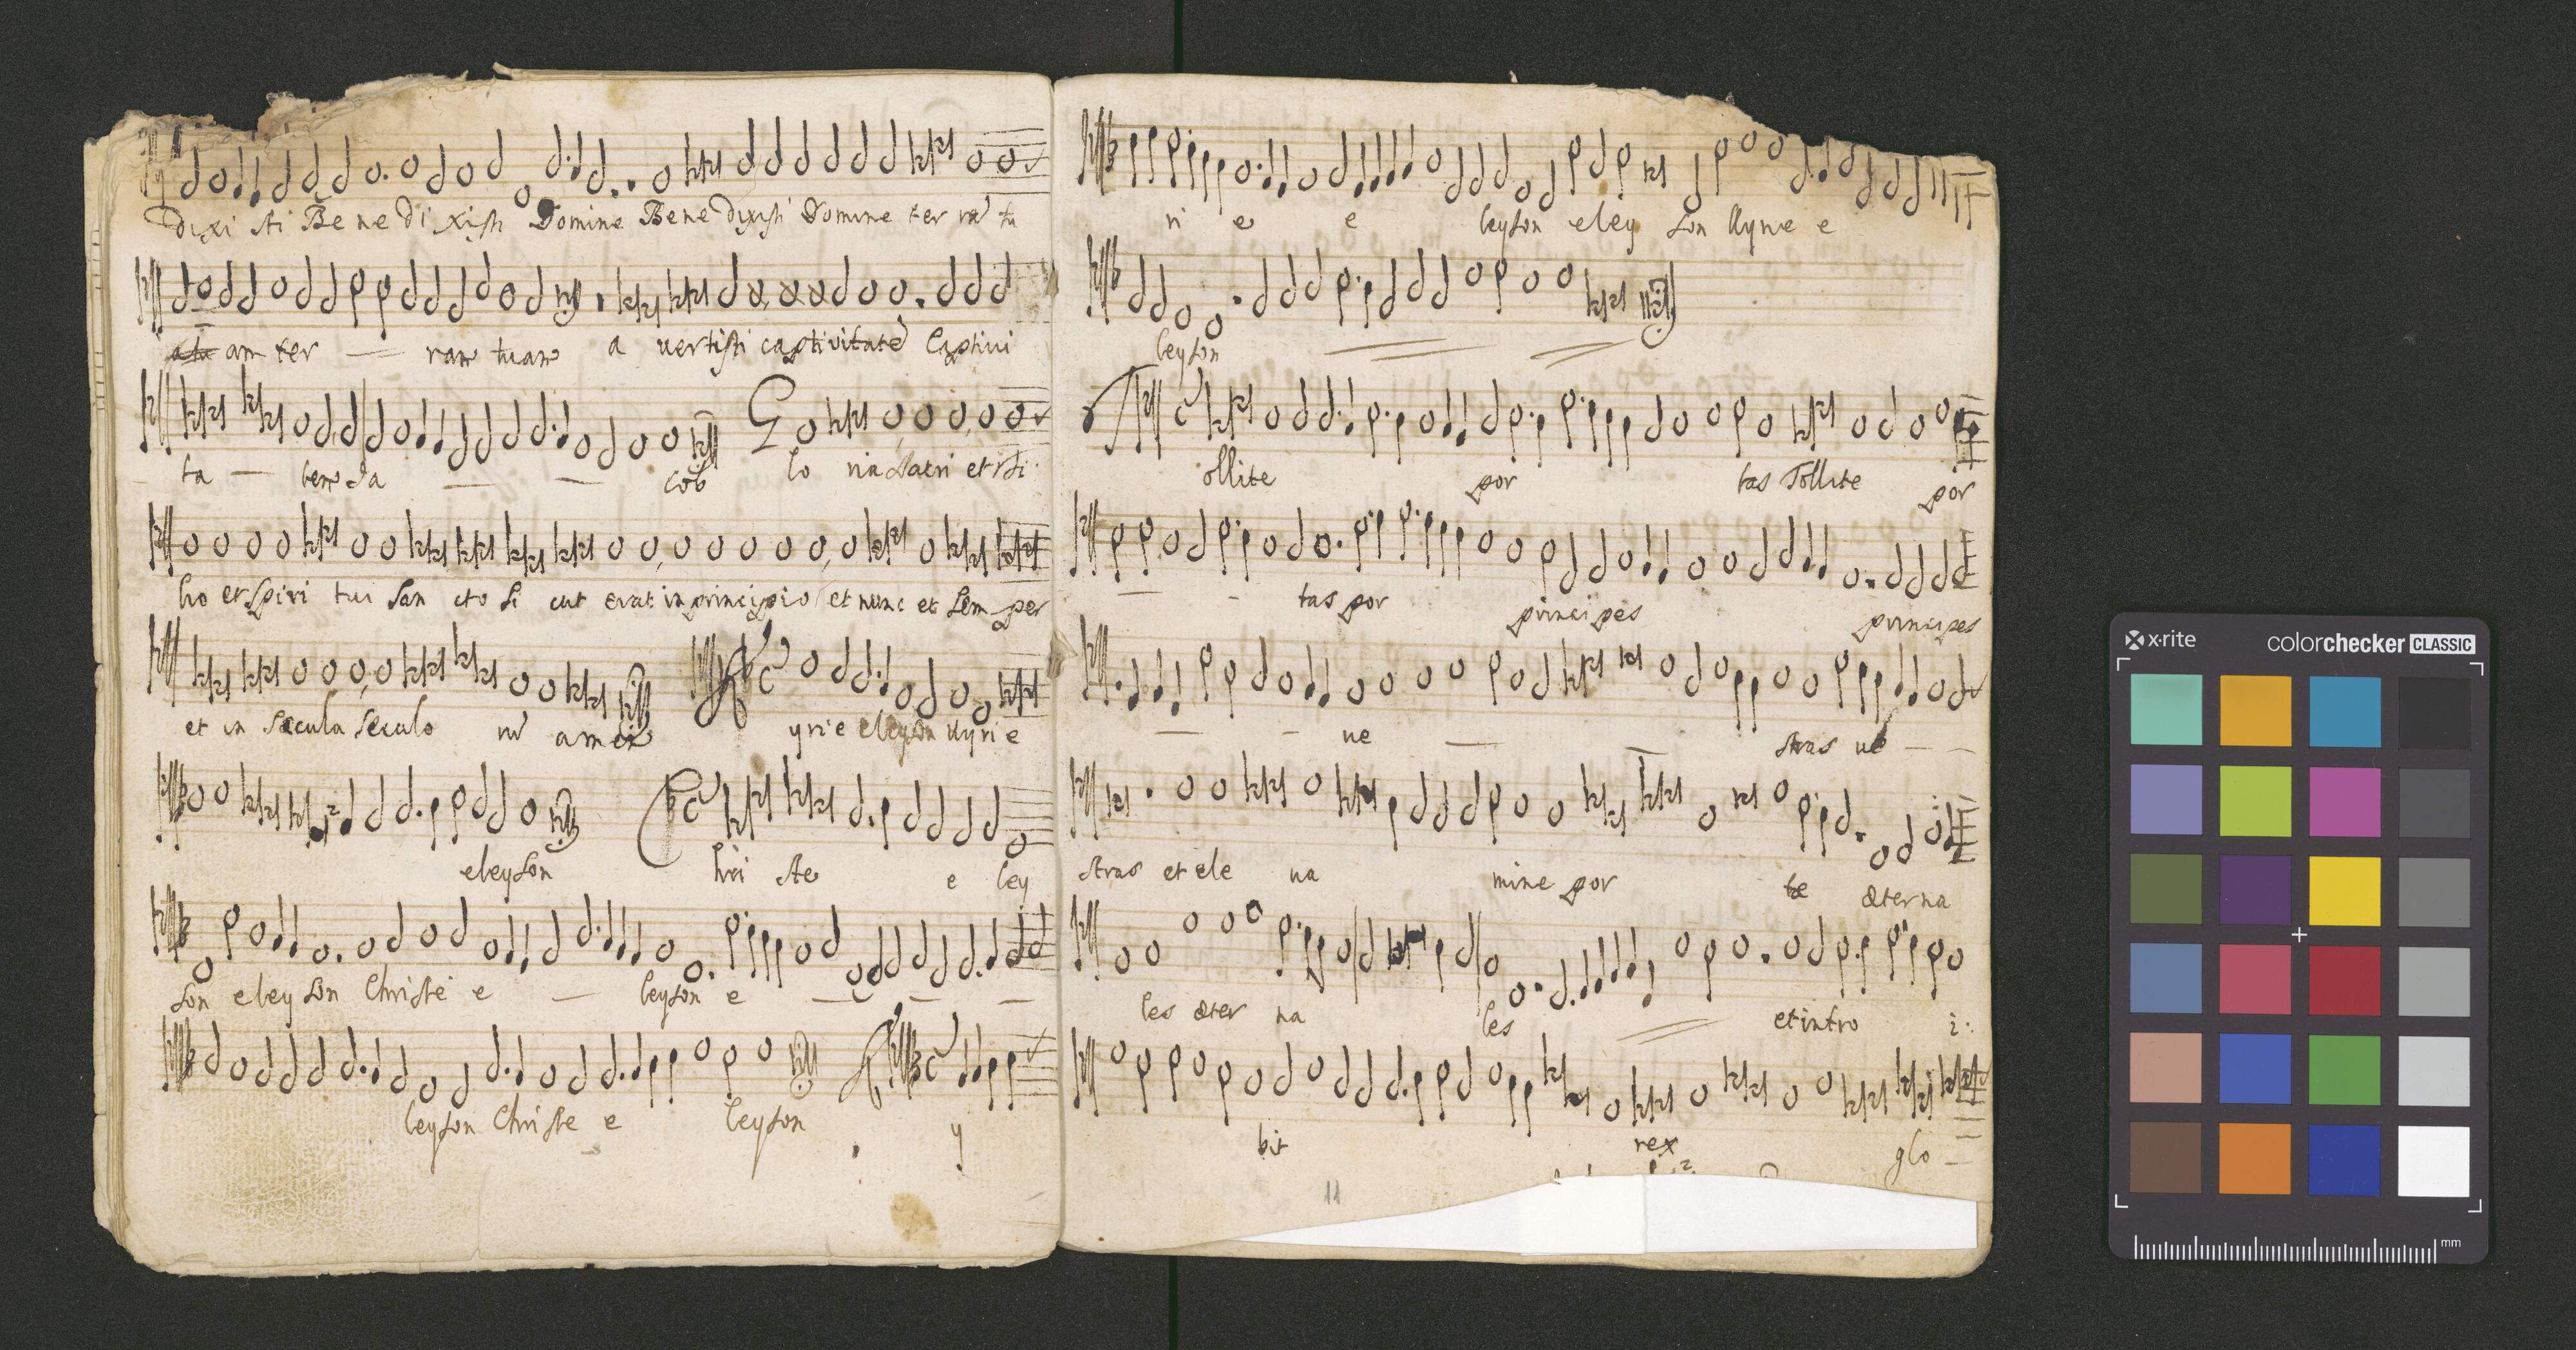 dixi sti Be ne di xisti Domine Bene dixisti Domine ter rā tu
am ter — ram tuam a vertisti captivitatē Captivi
ta — tem Ja — — cob Glo ria Patri et Fi:
lio et Spiri tui San cto Si cut erat in principio et nunc et Sem per
et in Sæcula Sæculo rū amen Kyrie eleyson Kyri e
eleyson Chri ste e ley
son eley son Christe e — leyson e — — —
leyson Christe e leyson Ky
ri e e leyson eley son Kyrie e
leyson
Tollite por tas Tollite por
— - tas por principes principes
— - ve — — stras ve — —
stras et ele va mine por tæ æterna
les æter na les et intro i:
bit rex glo —
11
x·rite colorchecker CLASSIC
mm